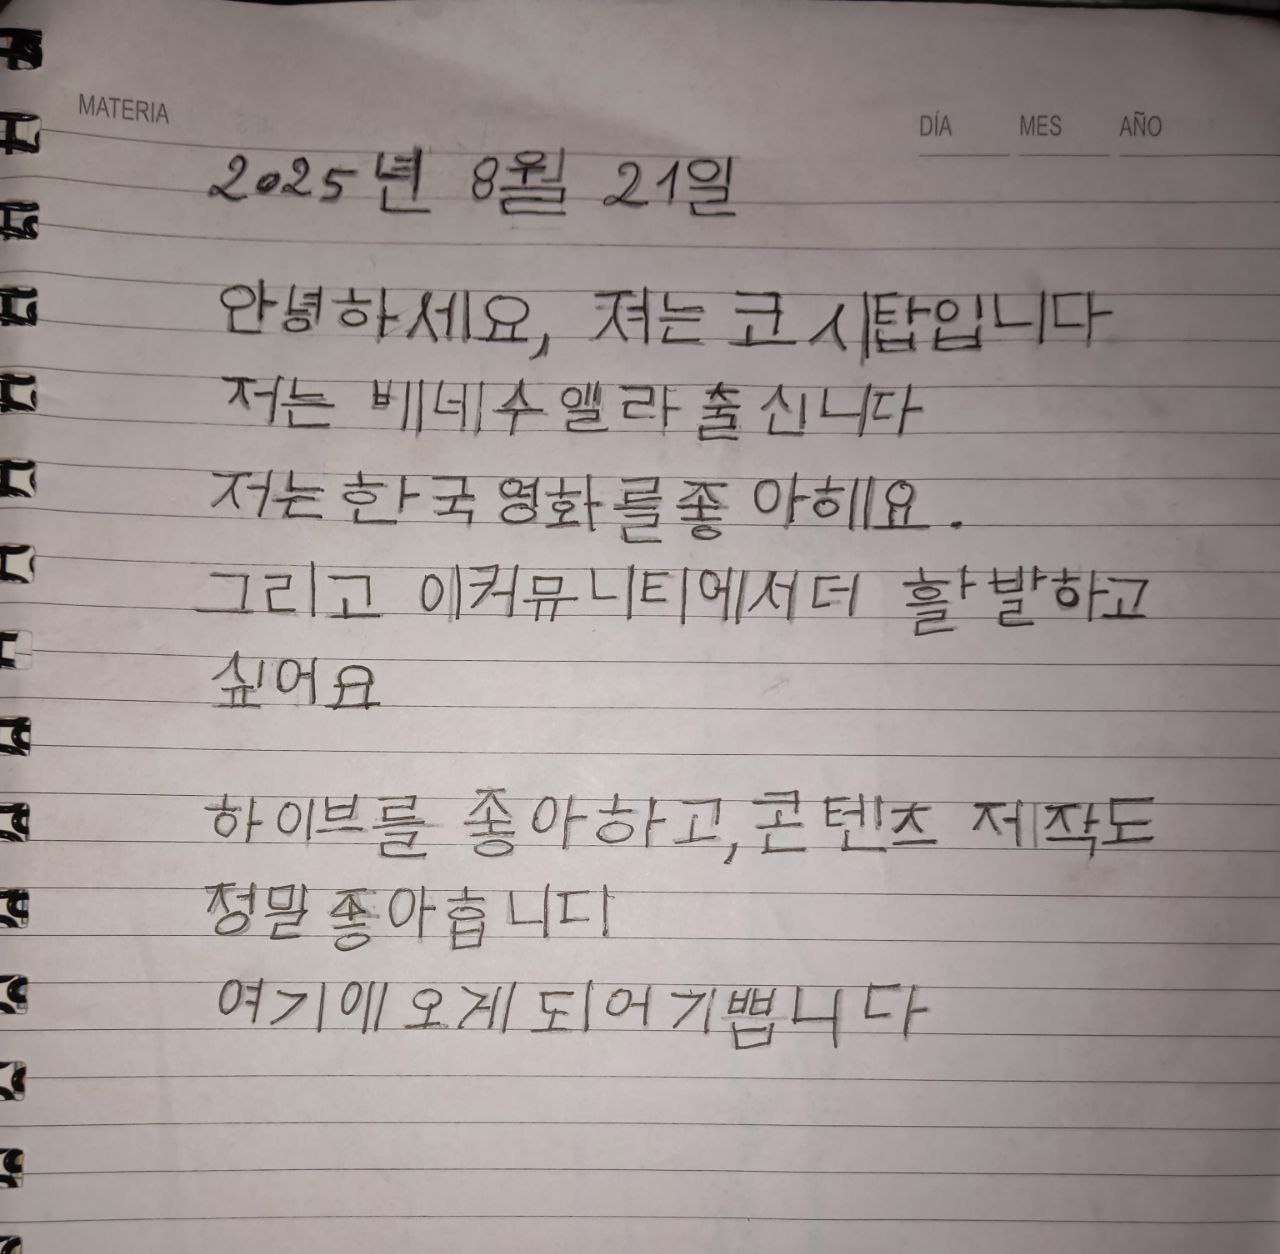 MATERIA
DÍA MES AÑO
2025년 8월 21일
안녕하세요, 저는 코시탑입니다
저는 베네수엘라출신니다
저는한국영화를좋아헤요.
그리고 이커뮤니티에서더 활발하고
싶어요
하이브를 좋아하고,콘텐츠 제작도
정말좋아흡니다
여기에오게되어기쁩니다